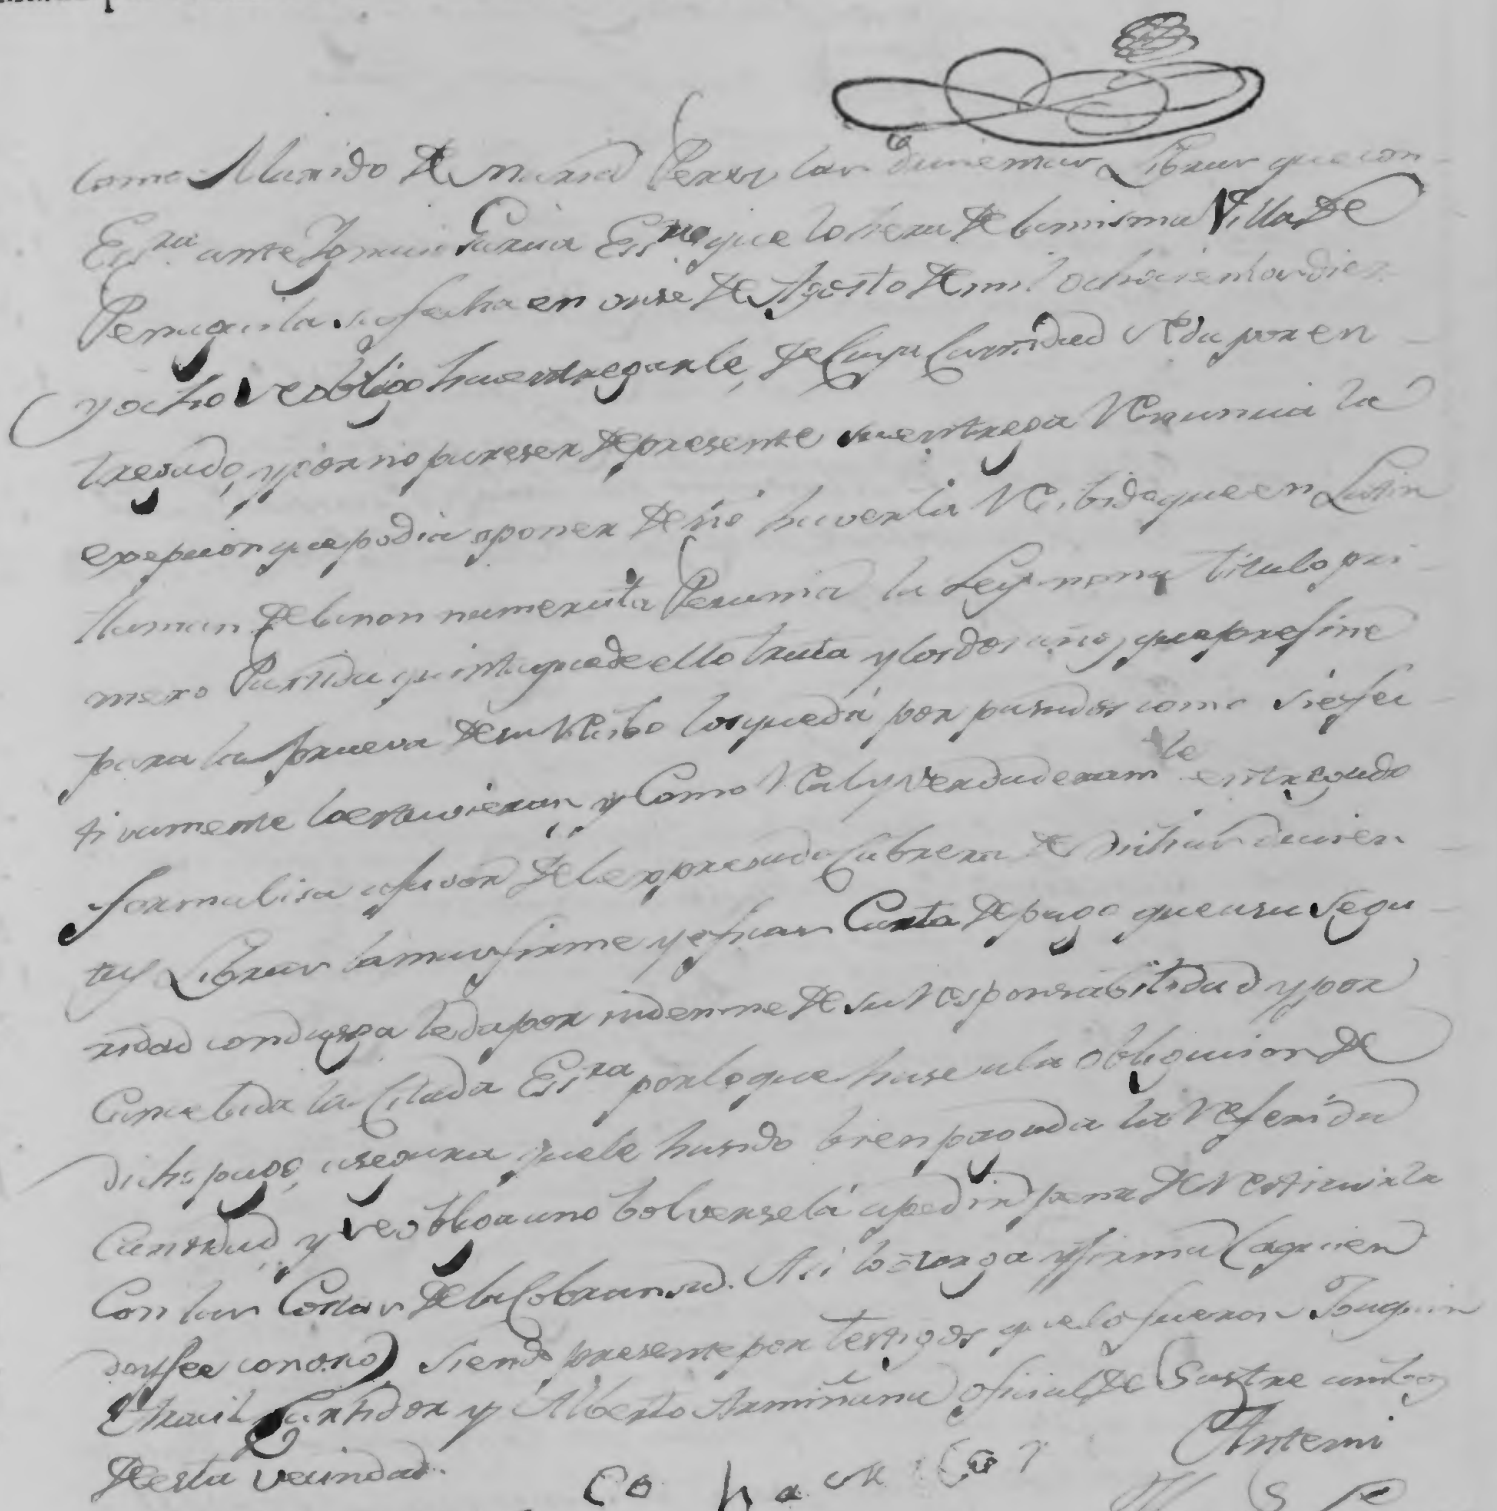 como Marido de Maria Perez las ducientas Libras que con
Essra. ante Ignacio Garcia Essno. que lo hera de la misma Villa de
Penaguila su fecha en onse de Agosto de mil ochocientos dies
y ocho se obligo ha entregarle, de cuya Cantidad se da por en
tregado, y por no pareser de presente su entrega Renuncia la
exepcion que podia oponer de no haverla Resibido que en Latin
llaman de la non numerata Pecunia la Ley nona titulo pri
mero Partida quinta que de ello trata y los dos años que prefine
para la prueva de su Resibo los que da por pasados como si efec
tivamente lo estuvieran, y Como Real y verdaderamte entregado
formalisa a favor del expresado Cabrera de dichas ducien
tas Libras la mas firme y eficas Carta de pago que a su segu
ridad condusga le da por indemne de su Responsabilidad y por
Cancelada la Citada Essra. por lo que hase a la obligacion de
dicho pago, asegura que le ha sido bien pagada la Referida
Cantidad y se obliga a no bolversela a pedir pena de Restituirla
Con las Costas de la Cobransa. Asi lo otorga y firma (a quien
doy fee conosco) siendo presente por testigos que lo fueron Joaquin
Cartidor y Alberto Armiñana oficial de Sastre ambos
de esta vecindad.
Antemi